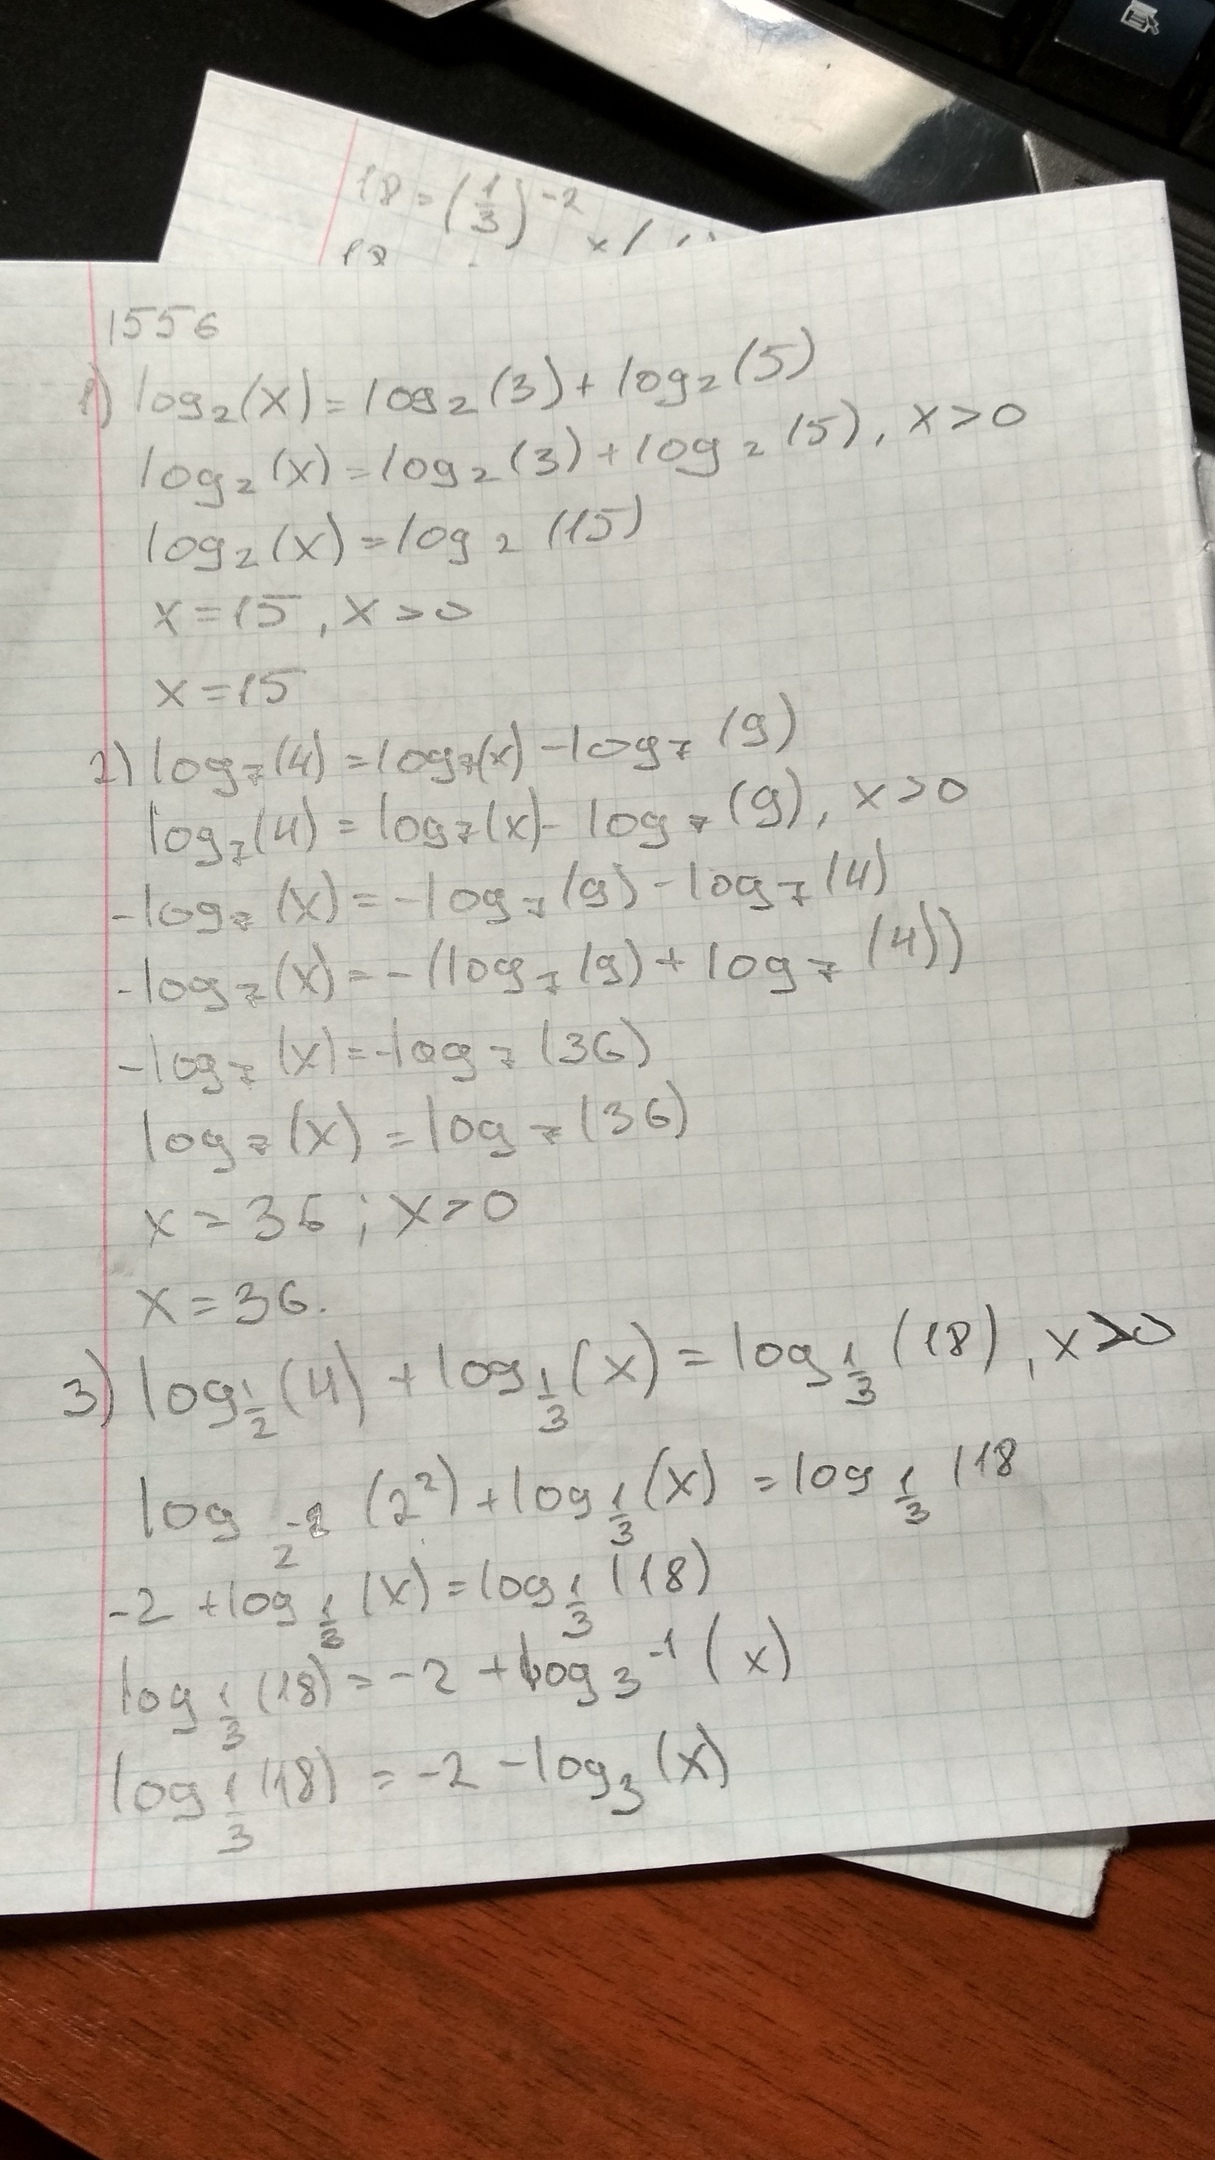 18 = (1/3)^-2
1556
1) log₂(x) = log₂(3) + log₂(5)
log₂(x) = log₂(3) + log₂(5), x > 0
log₂(x) = log₂(15)
x = 15, x > 0
x = 15
2) log₇(4) = log₇(x) - log₇(9)
log₇(4) = log₇(x) - log₇(9), x > 0
-log₇(x) = -log₇(9) - log₇(4)
-log₇(x) = -(log₇(9) + log₇(4))
-log₇(x) = -log₇(36)
log₇(x) = log₇(36)
x = 36; x > 0
x = 36.
3) log_1/2(4) + log_1/3(x) = log_1/3(18), x > 0
log_2^-1(2²) + log_1/3(x) = log_1/3(18
-2 + log_1/3(x) = log_1/3(18)
log_1/3(18) = -2 + log_3^-1(x)
log_1/3(18) = -2 - log₃(x)